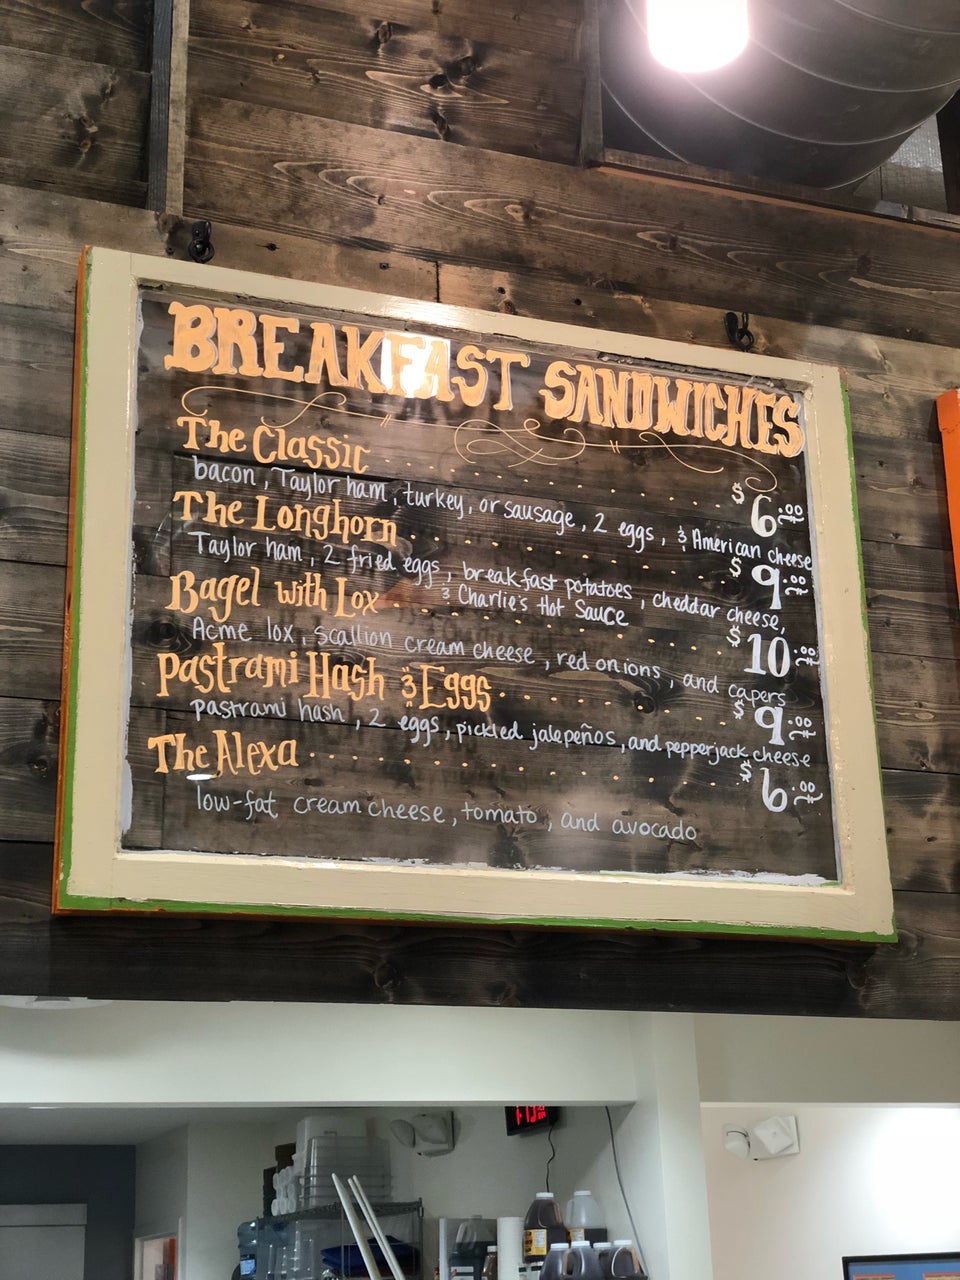 BREAKFAST SANDWICHES
The Classic . . . . . . . . . . . . $6.00
bacon, Taylor ham, turkey, or sausage, 2 eggs, & American cheese
The Longhorn . . . . . . . . . . . $9.00
Taylor ham, 2 fried eggs, breakfast potatoes, cheddar cheese,
& Charlie's Hot Sauce
Bagel with Lox . . . . . . . . . . . $10.00
Acme lox, scallion cream cheese, red onions, and capers
Pastrami Hash & Eggs . . . . . . . . . $9.00
pastrami hash, 2 eggs, pickled jalepeños, and pepperjack cheese
The Alexa . . . . . . . . . . . . . . . $6.00
low-fat cream cheese, tomato, and avocado